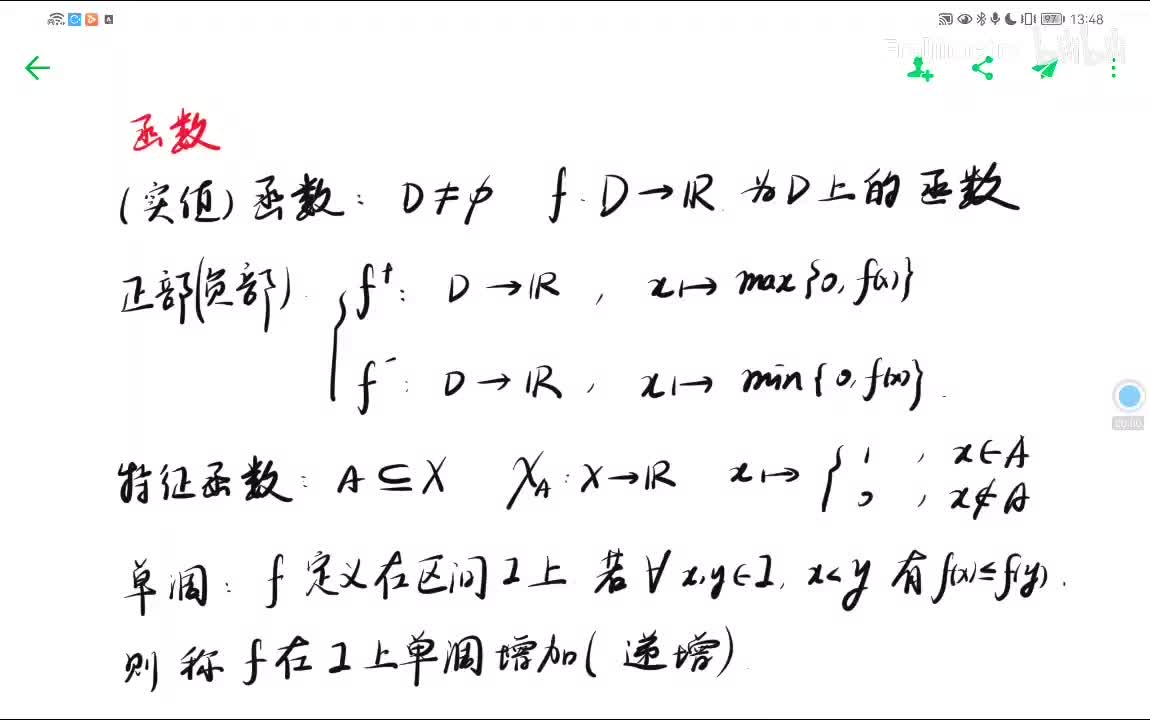 13:48
97
bilibili
函数
(实值)函数: D≠∅ f: D→ℝ 为D上的函数
正部(负部) { f⁺: D→ℝ, x↦max{0, f(x)}
f⁻: D→ℝ, x↦min{0, f(x)}.
特征函数: A⊆X χ_A: X→ℝ x↦{ 1, x∈A
0, x∉A
单调: f定义在区间I上 若∀x,y∈I, x<y 有f(x)≤f(y).
则称f在I上单调增加(递增)
00:00